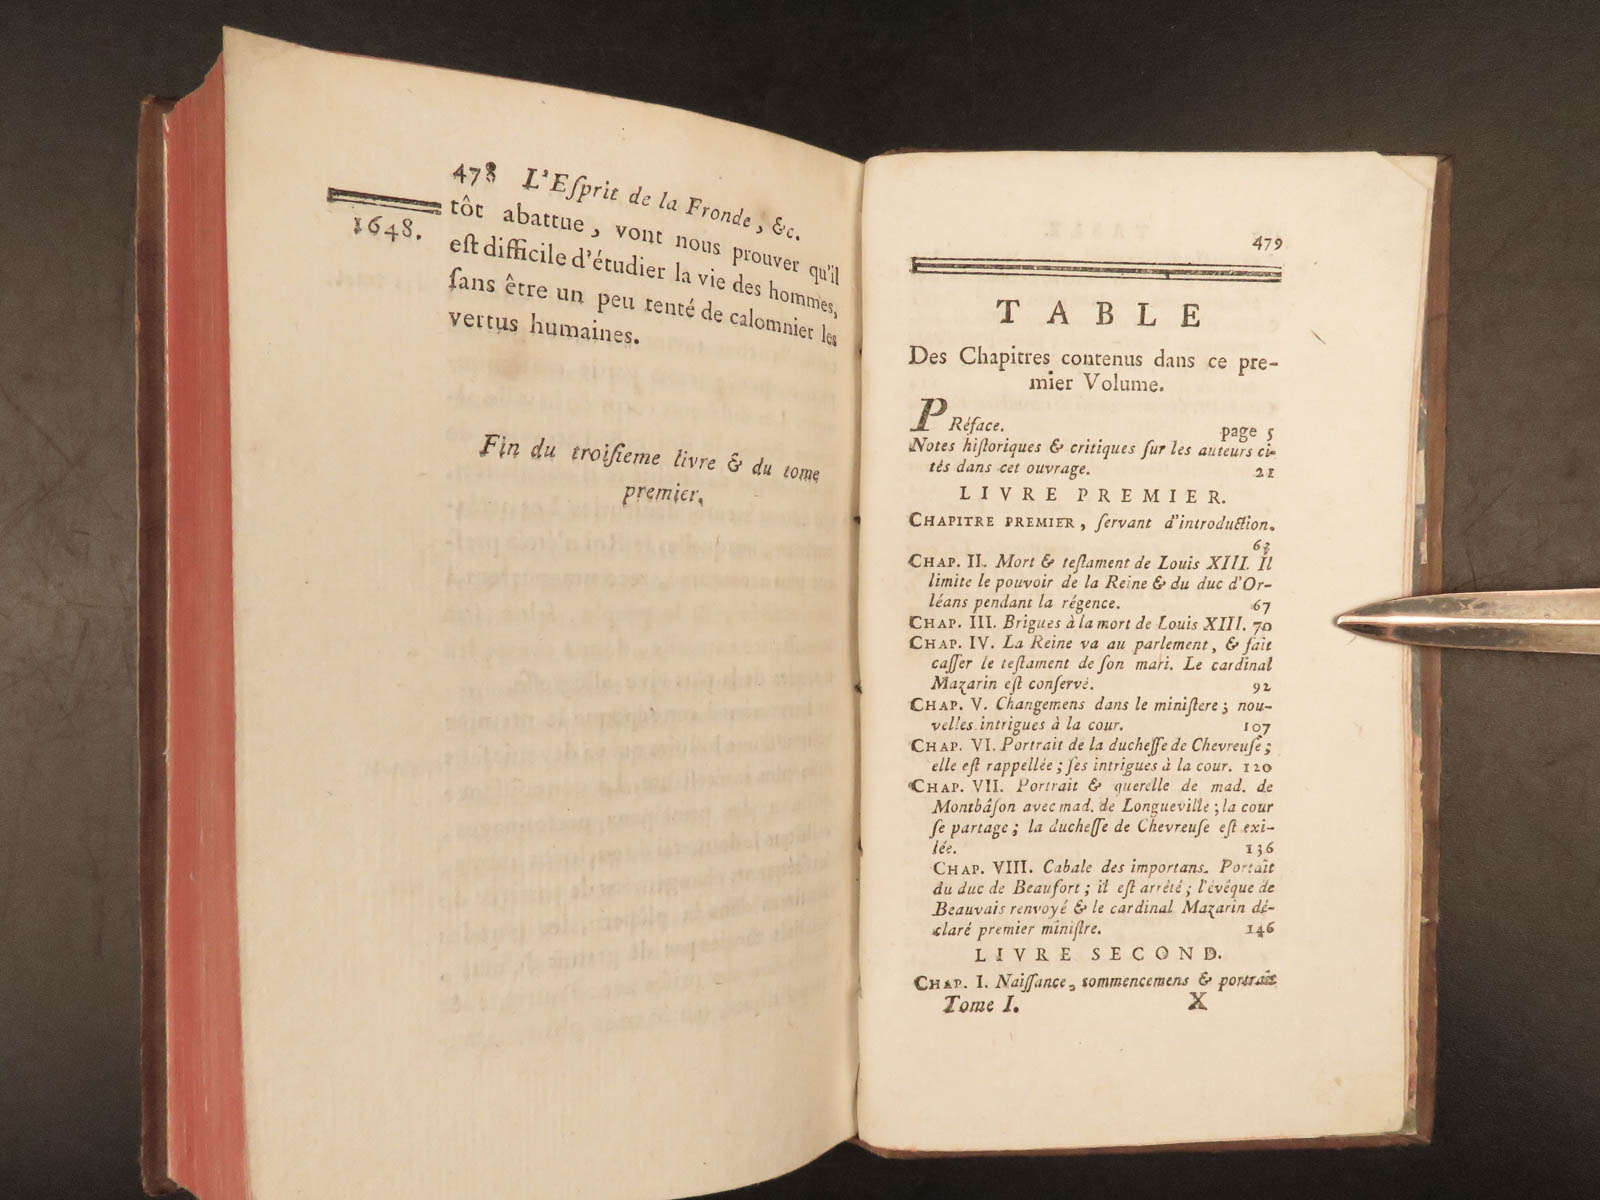 478 L'Eſprit de la Fronde, &c.
1648.
tôt abattue, vont nous prouver qu'il
eſt difficile d'étudier la vie des hommes,
ſans être un peu tenté de calomnier les
vertus humaines.
Fin du troiſieme livre & du tome
premier.
479
TABLE
Des Chapitres contenus dans ce pre-
mier Volume.
PRéface. page 5
Notes hiſtoriques & critiques ſur les auteurs ci-
tés dans cet ouvrage. 21
LIVRE PREMIER.
CHAPITRE PREMIER, ſervant d'introduction.
63
CHAP. II. Mort & teſtament de Louis XIII. Il
limite le pouvoir de la Reine & du duc d'Or-
léans pendant la régence. 67
CHAP. III. Brigues à la mort de Louis XIII. 70
CHAP. IV. La Reine va au parlement, & fait
caſſer le teſtament de ſon mari. Le cardinal
Mazarin eſt conſervé. 92
CHAP. V. Changemens dans le miniſtere; nou-
velles intrigues à la cour. 107
CHAP. VI. Portrait de la ducheſſe de Chevreuſe;
elle eſt rappellée; ſes intrigues à la cour. 120
CHAP. VII. Portrait & querelle de mad. de
Montbâſon avec mad. de Longueville; la cour
ſe partage; la ducheſſe de Chevreuſe eſt exi-
lée. 136
CHAP. VIII. Cabale des importans. Portrait
du duc de Beaufort; il eſt arrêté; l'évêque de
Beauvais renvoyé & le cardinal Mazarin dé-
claré premier miniſtre. 146
LIVRE SECOND.
CHAP. I. Naiſſance, commencemens & portrait
Tome I. X